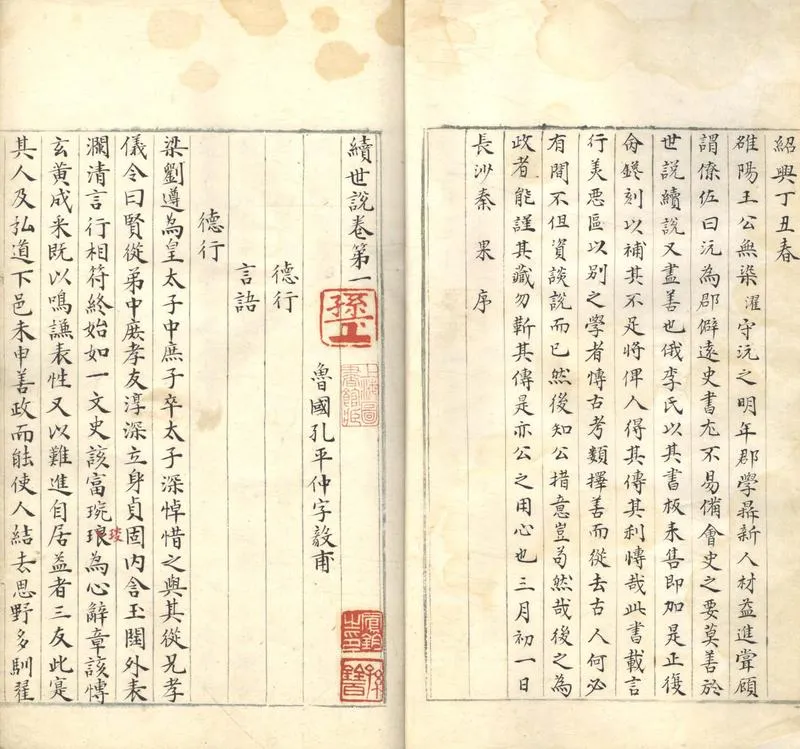 紹興丁丑春
睢陽王公無染濯守沅之明年郡學鼎新人材益進嘗顧
謂僚佐曰沅為郡僻遠史書尤不易備會史之要莫善於
世說續說又盡善也俄李氏以其書板来售即加是正復
命鋟刻以補其不足將俾人得其傳其利愽哉此書載言
行美惡區以別之學者愽古考類擇善而從去古人何必
有間不但資談說而已然後知公措意豈苟然哉後之為
政者能謹其藏勿靳其傳是亦公之用心也三月初一日
長沙秦果序
續世說卷第一
上海圖書館藏
魯國孔平仲字毅甫
德行
言語
德行
梁劉遵為皇太子中庶子卒太子深悼惜之與其從兄孝
儀令曰賢從弟中庶孝友淳深立身貞固內含玉閏外表
瀾清言行相符終始如一文史該富琬琅琰為心辭章該愽
玄黃成采既以鳴謙表性又以難進自居益者三友此寔
其人及弘道下邑未申善政而能使人結去思野多馴翟